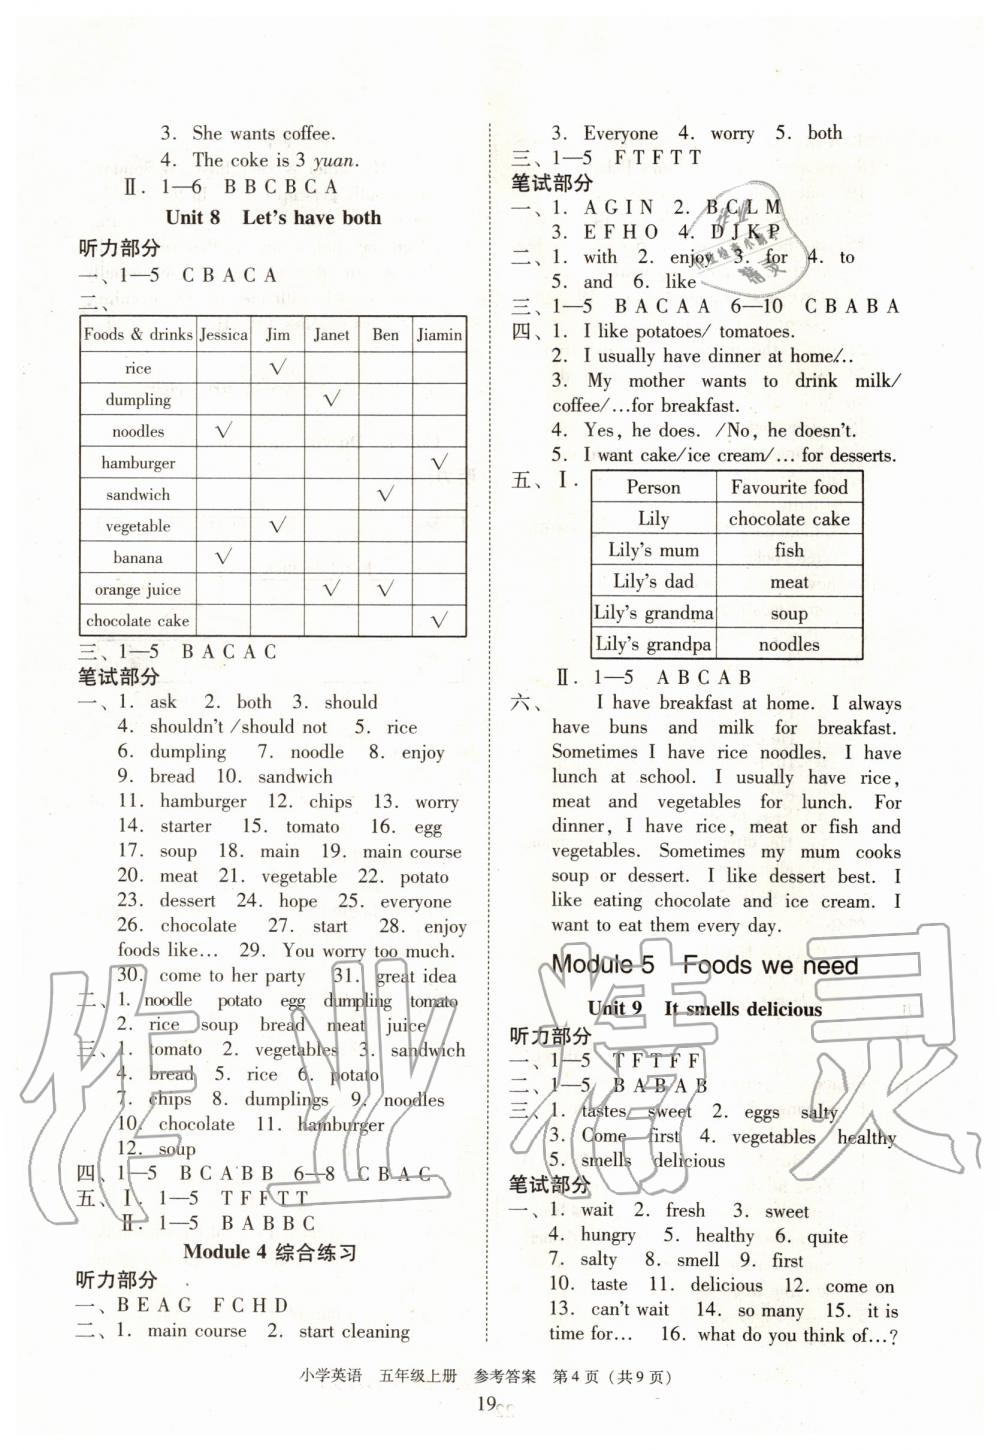 3. She wants coffee.
4. The coke is 3 yuan.
Ⅱ. 1—6 B B C B C A
Unit 8 Let's have both
听力部分
一、1—5 C B A C A
二、
Foods & drinks Jessica Jim Janet Ben Jiamin
rice √
dumpling √
noodles √
hamburger √
sandwich √
vegetable √
banana √
orange juice √ √
chocolate cake √
三、1—5 B A C A C
笔试部分
一、1. ask 2. both 3. should
4. shouldn't /should not 5. rice
6. dumpling 7. noodle 8. enjoy
9. bread 10. sandwich
11. hamburger 12. chips 13. worry
14. starter 15. tomato 16. egg
17. soup 18. main 19. main course
20. meat 21. vegetable 22. potato
23. dessert 24. hope 25. everyone
26. chocolate 27. start 28. enjoy
foods like… 29. You worry too much.
30. come to her party 31. great idea
二、1. noodle potato egg dumpling tomato
2. rice soup bread meat juice
三、1. tomato 2. vegetables 3. sandwich
4. bread 5. rice 6. potato
7. chips 8. dumplings 9. noodles
10. chocolate 11. hamburger
12. soup
四、1—5 B C A B B 6—8 C B A C
五、Ⅰ. 1—5 T F F T T
Ⅱ. 1—5 B A B B C
Module 4 综合练习
听力部分
一、B E A G F C H D
二、1. main course 2. start cleaning
3. Everyone 4. worry 5. both
三、1—5 F T F T T
笔试部分
一、1. A G I N 2. B C L M
3. E F H O 4. D J K P
二、1. with 2. enjoy 3. for 4. to
5. and 6. like
三、1—5 B A C A A 6—10 C B A B A
四、1. I like potatoes/ tomatoes.
2. I usually have dinner at home/..
3. My mother wants to drink milk/
coffee/…for breakfast.
4. Yes, he does. /No, he doesn't.
5. I want cake/ice cream/… for desserts.
五、Ⅰ.
Person Favourite food
Lily chocolate cake
Lily's mum fish
Lily's dad meat
Lily's grandma soup
Lily's grandpa noodles
Ⅱ. 1—5 A B C A B
六、 I have breakfast at home. I always
have buns and milk for breakfast.
Sometimes I have rice noodles. I have
lunch at school. I usually have rice,
meat and vegetables for lunch. For
dinner, I have rice, meat or fish and
vegetables. Sometimes my mum cooks
soup or dessert. I like dessert best. I
like eating chocolate and ice cream. I
want to eat them every day.
Module 5 Foods we need
Unit 9 It smells delicious
听力部分
一、1—5 T F T F F
二、1—5 B A B A B
三、1. tastes sweet 2. eggs salty
3. Come first 4. vegetables healthy
5. smells delicious
笔试部分
一、1. wait 2. fresh 3. sweet
4. hungry 5. healthy 6. quite
7. salty 8. smell 9. first
10. taste 11. delicious 12. come on
13. can't wait 14. so many 15. it is
time for… 16. what do you think of…?
小学英语 五年级上册 参考答案 第 4 页 (共 9 页)
19
作业精灵